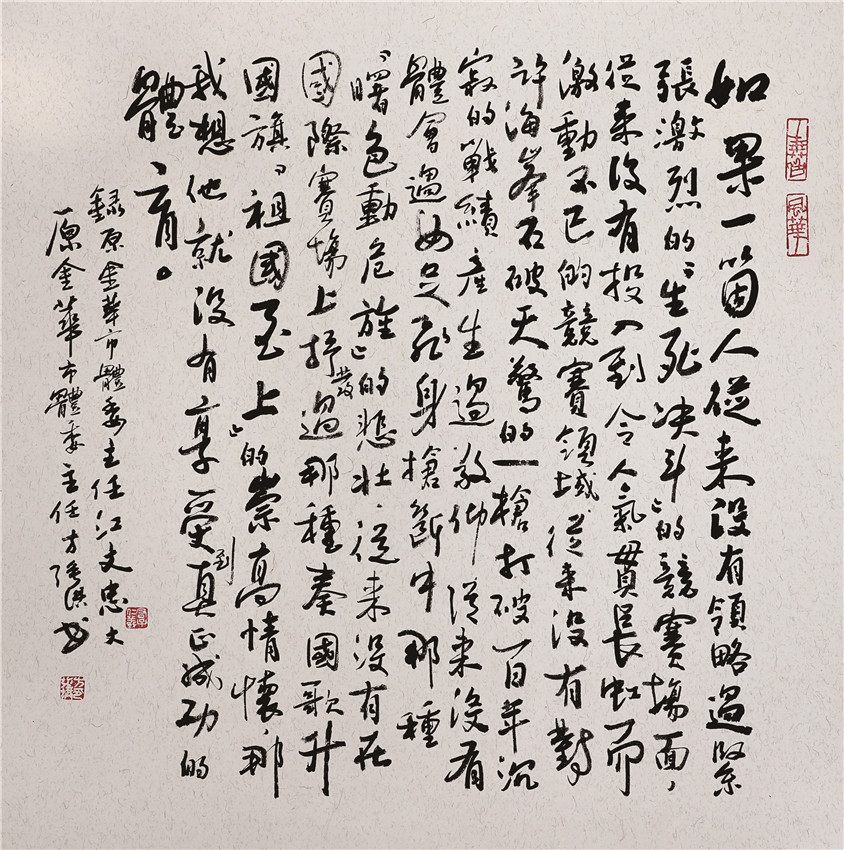 如果一箇人從来没有領略過緊
張激烈的“生死决斗”的競賽場面，
從来没有投入到令人氣貫長虹而
激動不已的競賽領域、從来没有對
許海峯石破天驚的一槍打破百年沉
寂的戰績産生過敬仰 從来没有
體會過女足孤身槍斷中那種
“曙色動危旌”的悲壯、從来没有在
國際賽場上抒發過那種奏國歌升
國旗、祖國至上”的崇高情懷、那
我想他就没有享受到真正成功的
體育。
録原金華市體委主任江文忠文
原金華市體委主任方書